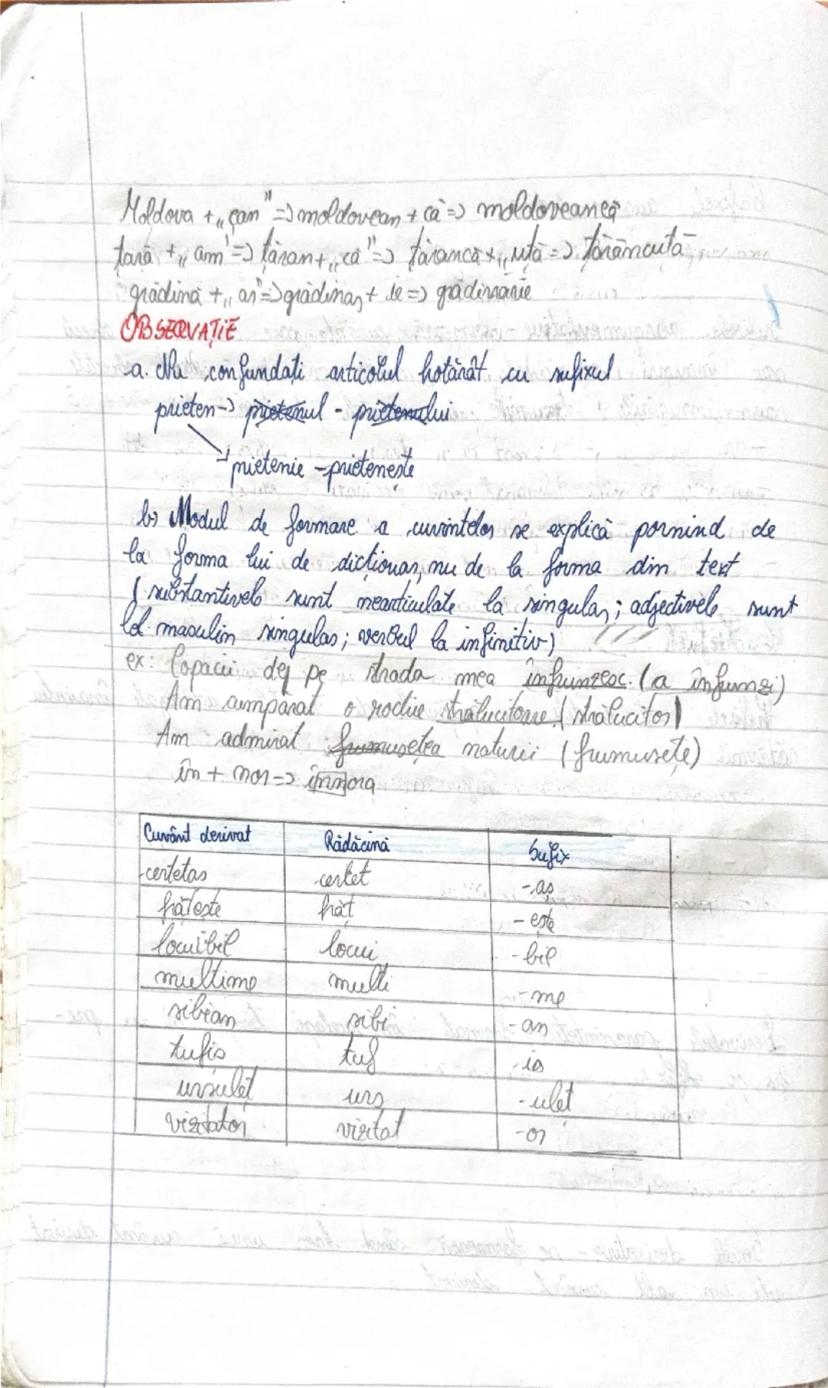 Moldova + „ean" => moldovean + că => moldoveancă
țară + „am" => țăran + „că" => țărancă + „uță => țărăncuță
grădină + „ar" => grădinar + ie => grădinărie
OBSERVAȚIE
a. Nu confundați articolul hotărât cu sufixul
prieten -> prietenul - prietenului
-> prietenie - prietenește
b) Modul de formare a cuvintelor se explică pornind de
la forma lui de dicționar, nu de la forma din text
(substantivele sunt nearticulate la singular; adjectivele sunt
la masculin singular; verbul la infinitiv)
ex: Copacii de pe strada mea înfrunzesc. (a înfunzi)
Am cumpărat o rochie strălucitoare (strălucitor)
Am admirat frumusețea naturii (frumusețe)
în + nor => înnora
Cuvânt derivat Rădăcină Sufix
certetaș certet -aș
frățește frăț -ește
locuibil locui -bil
multime multi -me
sibian sibi -an
tufiș tuf -iș
ursuleț urs -uleț
vizitator vizitat -or